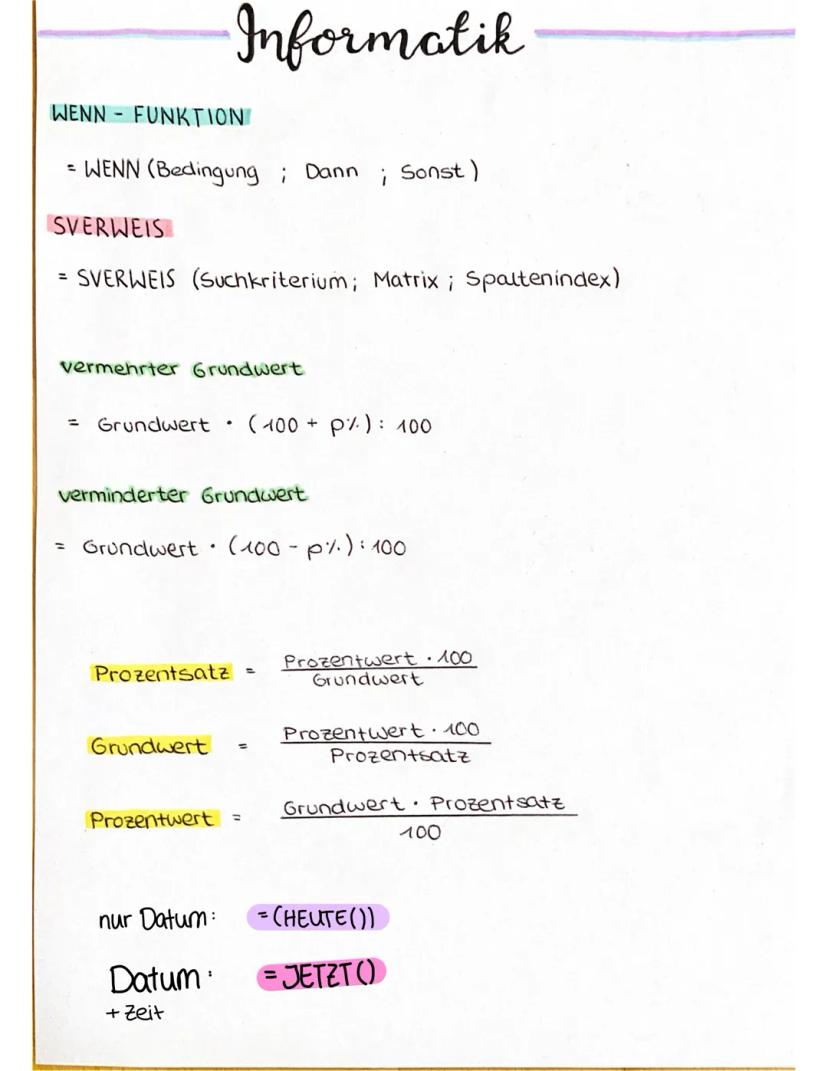 Informatik
WENN - FUNKTION
= WENN (Bedingung ; Dann ; Sonst)
SVERWEIS
= SVERWEIS (Suchkriterium; Matrix ; Spaltenindex)
vermehrter Grundwert
= Grundwert · (100 + p%) : 100
verminderter Grundwert
= Grundwert · (100 - p%) : 100
Prozentsatz = Prozentwert · 100
Grundwert
Grundwert = Prozentwert · 100
Prozentsatz
Prozentwert = Grundwert · Prozentsatz
100
nur Datum: =(HEUTE())
Datum: = JETZT()
+ Zeit